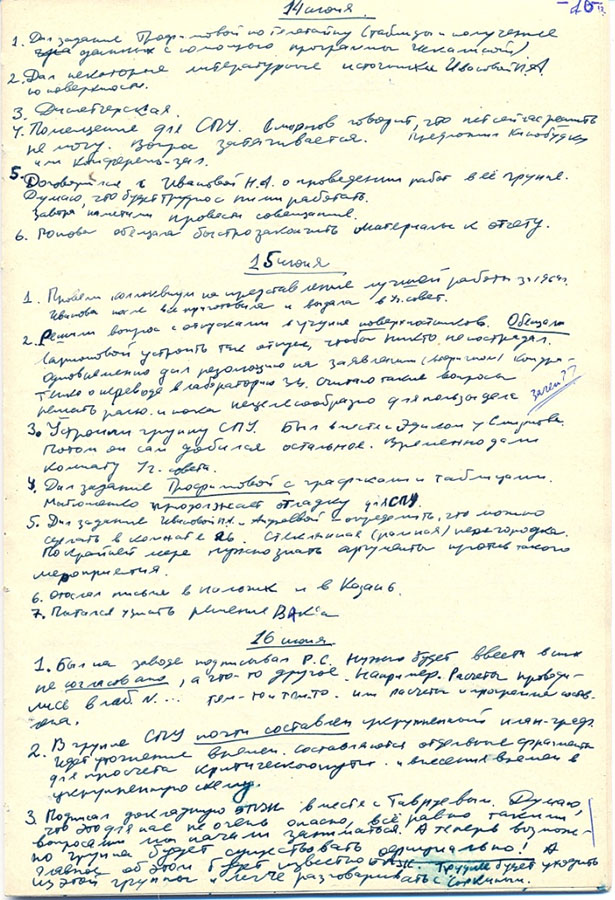 14 июня
1. Дал задание Трофимовой по Телетайпу (таблицы и получение
данных с помощью программы
2. Дал некоторые литературные источники Ивановой Н.А
по поверхности.
3. Диспетчерская.
4. Помещение для СПУ. Смирнов говорит, что пет сейчас решить
не могу. Вопрос затягивается. Предложил кинобудку
или конференц-зал.
5. Договорился с Ивановой Н.А. о проведении работ в её группе.
Думаю, что будет трудно с ними работать.
Завтра наметили провести совещание.
6. Попова обещала быстро закончить материалы к отчету.
15 июня
1. Провели коллоквиум на представление лучшей работы за 196
Иванова после все приготовила и выдала в Уч. совет.
2. Решили вопрос с отпусками в группе поверхностников. Обещала
устроить так отпуск, чтобы никто не пострадал.
Одновременно дал резолюцию на заявлении
о переводе в лабораторию 34. Считаю такие вопросы
решать рано и пока нецелесообразно для пользы дела
зачем??
3. Устроили группу СПУ. Был вместе с Эдиком у Смирнова.
Потом он сам добился остальное. Временно дали
комнату Уч. совета.
4. Дал задание Трофимовой с графиками и таблицами.
продолжает отладку для СПУ.
5. Дал задание Ивановой Н.А. и определить, что можно
сделать в комнате 26. Стеклянная перегородка.
По крайней мере нужно знать аргументы против такого
мероприятия.
6. Отослал письмо в и в Казань.
7. Пытался узнать решение ВАК'а
16 июня
1. Был на заводе подписывал Р.С. Нужно будет ввести в них
не согласовано, а что-то другое. Например. Расчеты проводи-
лись в лаб. N... тем-то и тем-то. или расчеты и программа состав-
лена.
2. В группе СПУ почти составлен укрупненный план-граф.
Идет уточнение времен. составляются отдельные фрагменты
для просчета критического пути и внесения времен в
укрупненную схему.
3. Подписал докладную вместе с Думаю,
что это для нас не очень опасно, всё равно такими
вопросами мы начали заниматься. А теперь возмож-
но группа будет существовать официально! А
главное об этом будет известно Труднее будет уходить
из этой группы и легче разговаривать с